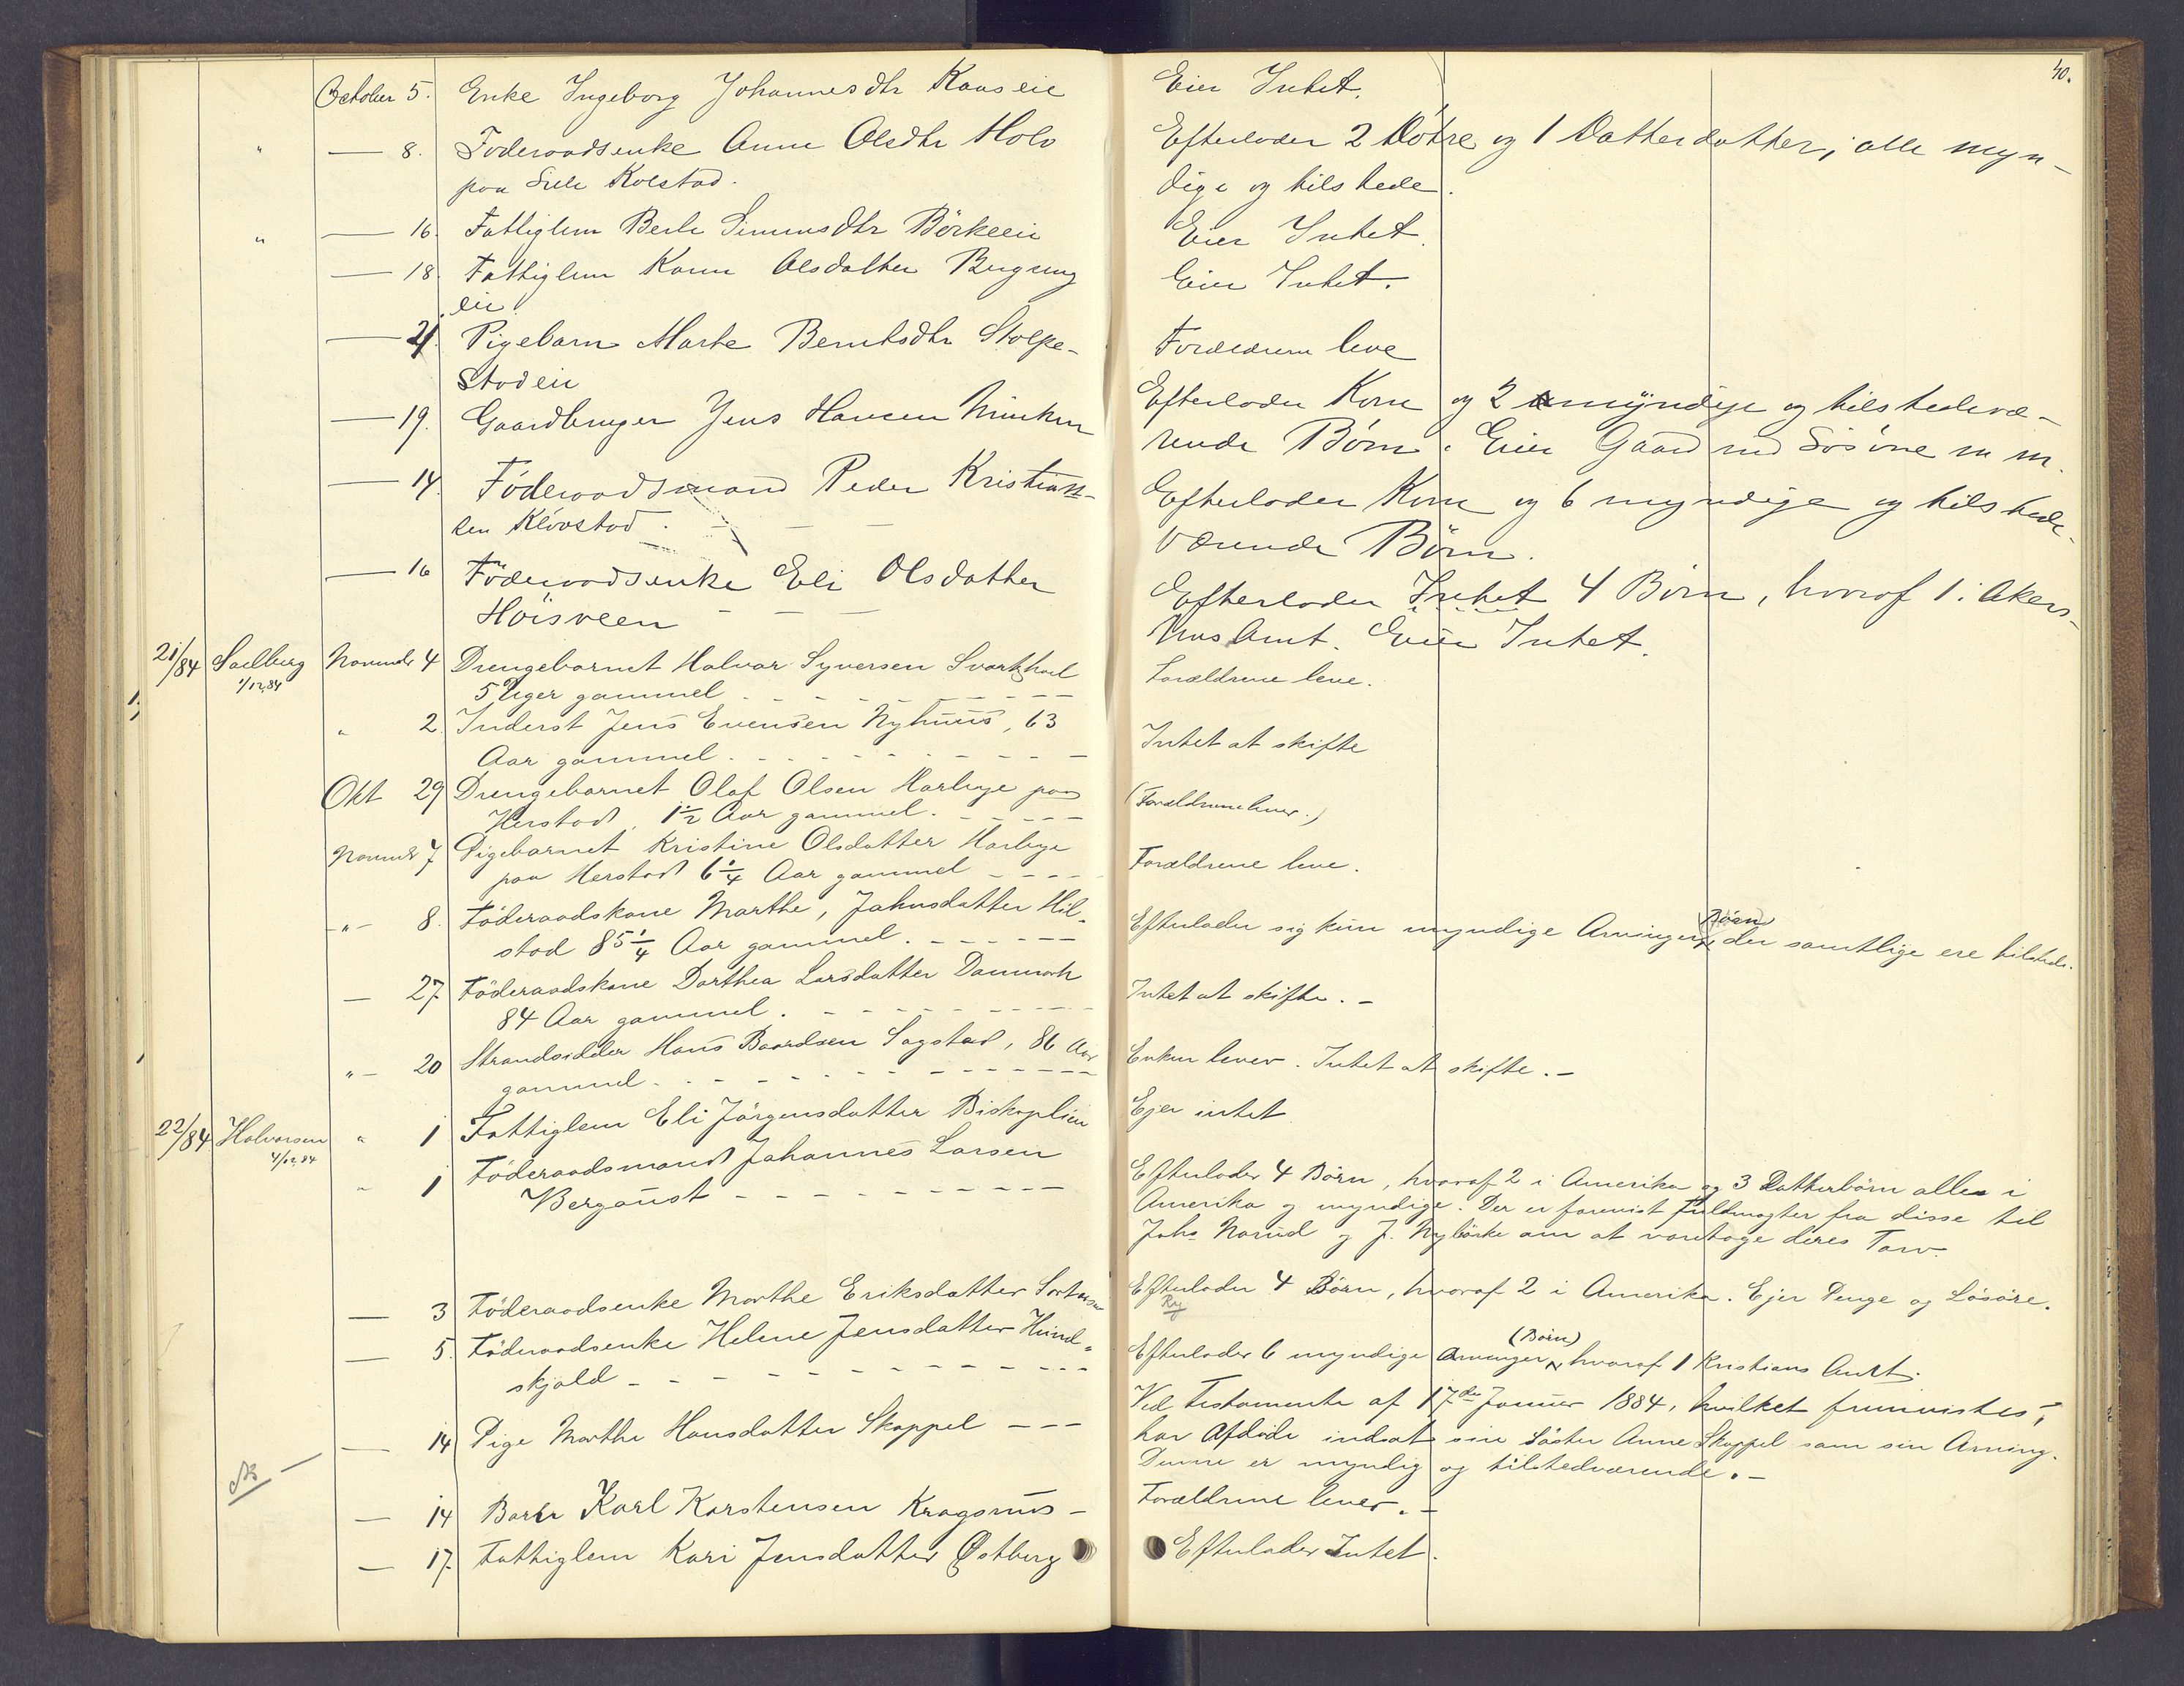 40.
October 5. Enke Ingeborg Johannesdtr Kaaseie
Eier Intet.
" — 8. Föderaadsenke Anne Olsdtr Holo
paa Kolstad.
Efterlader 2 Döttre og 1 Datterdatter, alle myn-
dige og tilstede.
" — 16. Fattiglem Berte Simensdtr Börkeeie
Eier Intet.
— 18 Fattiglem Karen Olsdatter
eie
Eier Intet.
— 21. Pigebarn Marte Berntsdtr Stolpe-
stadeie
Forældrene leve
— 19. Gaardbruger Jens Hansen
Efterlader Kone og 2 myndige og tilstedevæ-
rende Börn. Eier Gaard med Lösöre m m.
— 14. Föderaadsmand Peder Kristians-
sen Klövstad.
Efterlader Kone og 6 myndige og tilstede-
værende Börn.
— 16 Föderaadsenke Eli Olsdatter
Höisveen
Efterlader Intet 4 Börn, hvoraf 1 i Akers-
hus Amt. Eier Intet.
21/84 Saelberg 1/12 84 Novembr 4 Drengebarnet Halvar Syversen
5 Uger gammel
Forældrene leve.
" 2. Inderst Jens Evensen Nyhuus, 63
Aar gammel
Intet at skifte
Okt 29 Drengebarnet Olaf Olsen Harbye paa
Herstad, 1½ Aar gammel.
(Forældrene lever.)
Novembr 7 Pigebarnet Kristine Olsdatter Harbye
paa Herstad 6¼ Aar gammel
Forældrene leve.
-"- 8. Föderaadskone Marthe, Jahnsdatter Hil-
stad 85¼ Aar gammel.
Efterlader sig kun myndige Arvinger Börn der samtlige ere tilstede.
— 27 Föderaadskone Dorthea Larsdatter Danmark
84 Aar gammel.
Intet at skifte. —
"- 20 Strandsidder Hans Baardsen Sagstad, 86 Aar
gammel.
Enken lever. Intet at skifte. —
22/84 Halvorsen 4/12 84 " 1 Fattiglem Eli Jörgensdatter Biskoplien
Ejer intet
" 1 Föderaadsmand Johannes Larsen
Bergaust
Efterlader 4 Börn, hvoraf 2 i Amerika og 3 Datterbörn alle i
Amerika og myndige. Der er forevist Fuldmagter fra disse til
Johs Norud og J. Nybörke om at varetage deres Tarv.
— 3 Föderaadsenke Marthe Eriksdatter
Efterlader 4 Börn, hvoraf 2 i Amerika. Ejer Penge og Lösöre.
— 5. Föderaadsenke Helene Jensdatter Hund-
skjold
Efterlader 6 myndige Arvinger (Börn) hvoraf 1 Kristians Amt.
— 14 Pige Marthe Hansdatter Skappel
Ved Testamente af 17de Januar 1884, hvilket fremvistes,
har Afdöde indsat sin Söster Anne Skappel som sin Arving.
Denne er myndig og tilstedværende. —
— 14 Barn Karl Karstensen Kragsrus
Forældrene lever. —
— 17. Fattiglem Kari Jensdatter Østberg
Efterlader Intet.